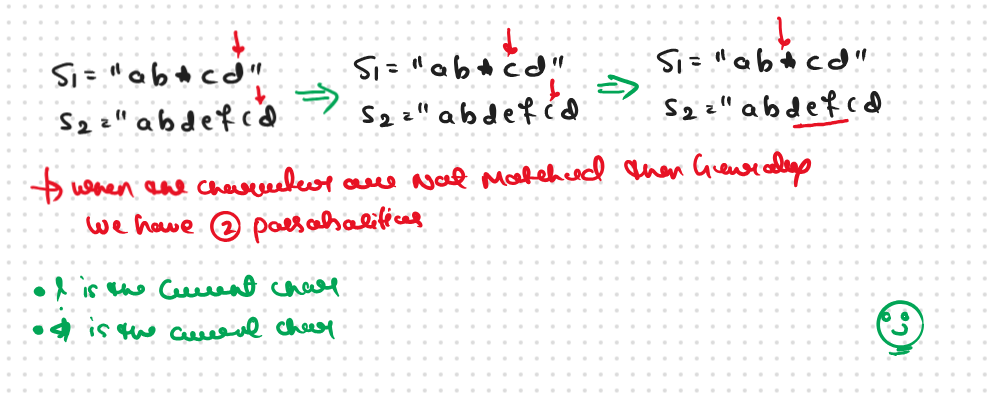 S1 = "ab*cd" ⇒ S1 = "ab*cd" ⇒ S1 = "ab*cd"
S2 = "abdefcd S2 = "abdefcd S2 = "abdefcd
→ when the characters are Not Matched then
we have ② possabalitices
• ? is the current char
• * is the current char